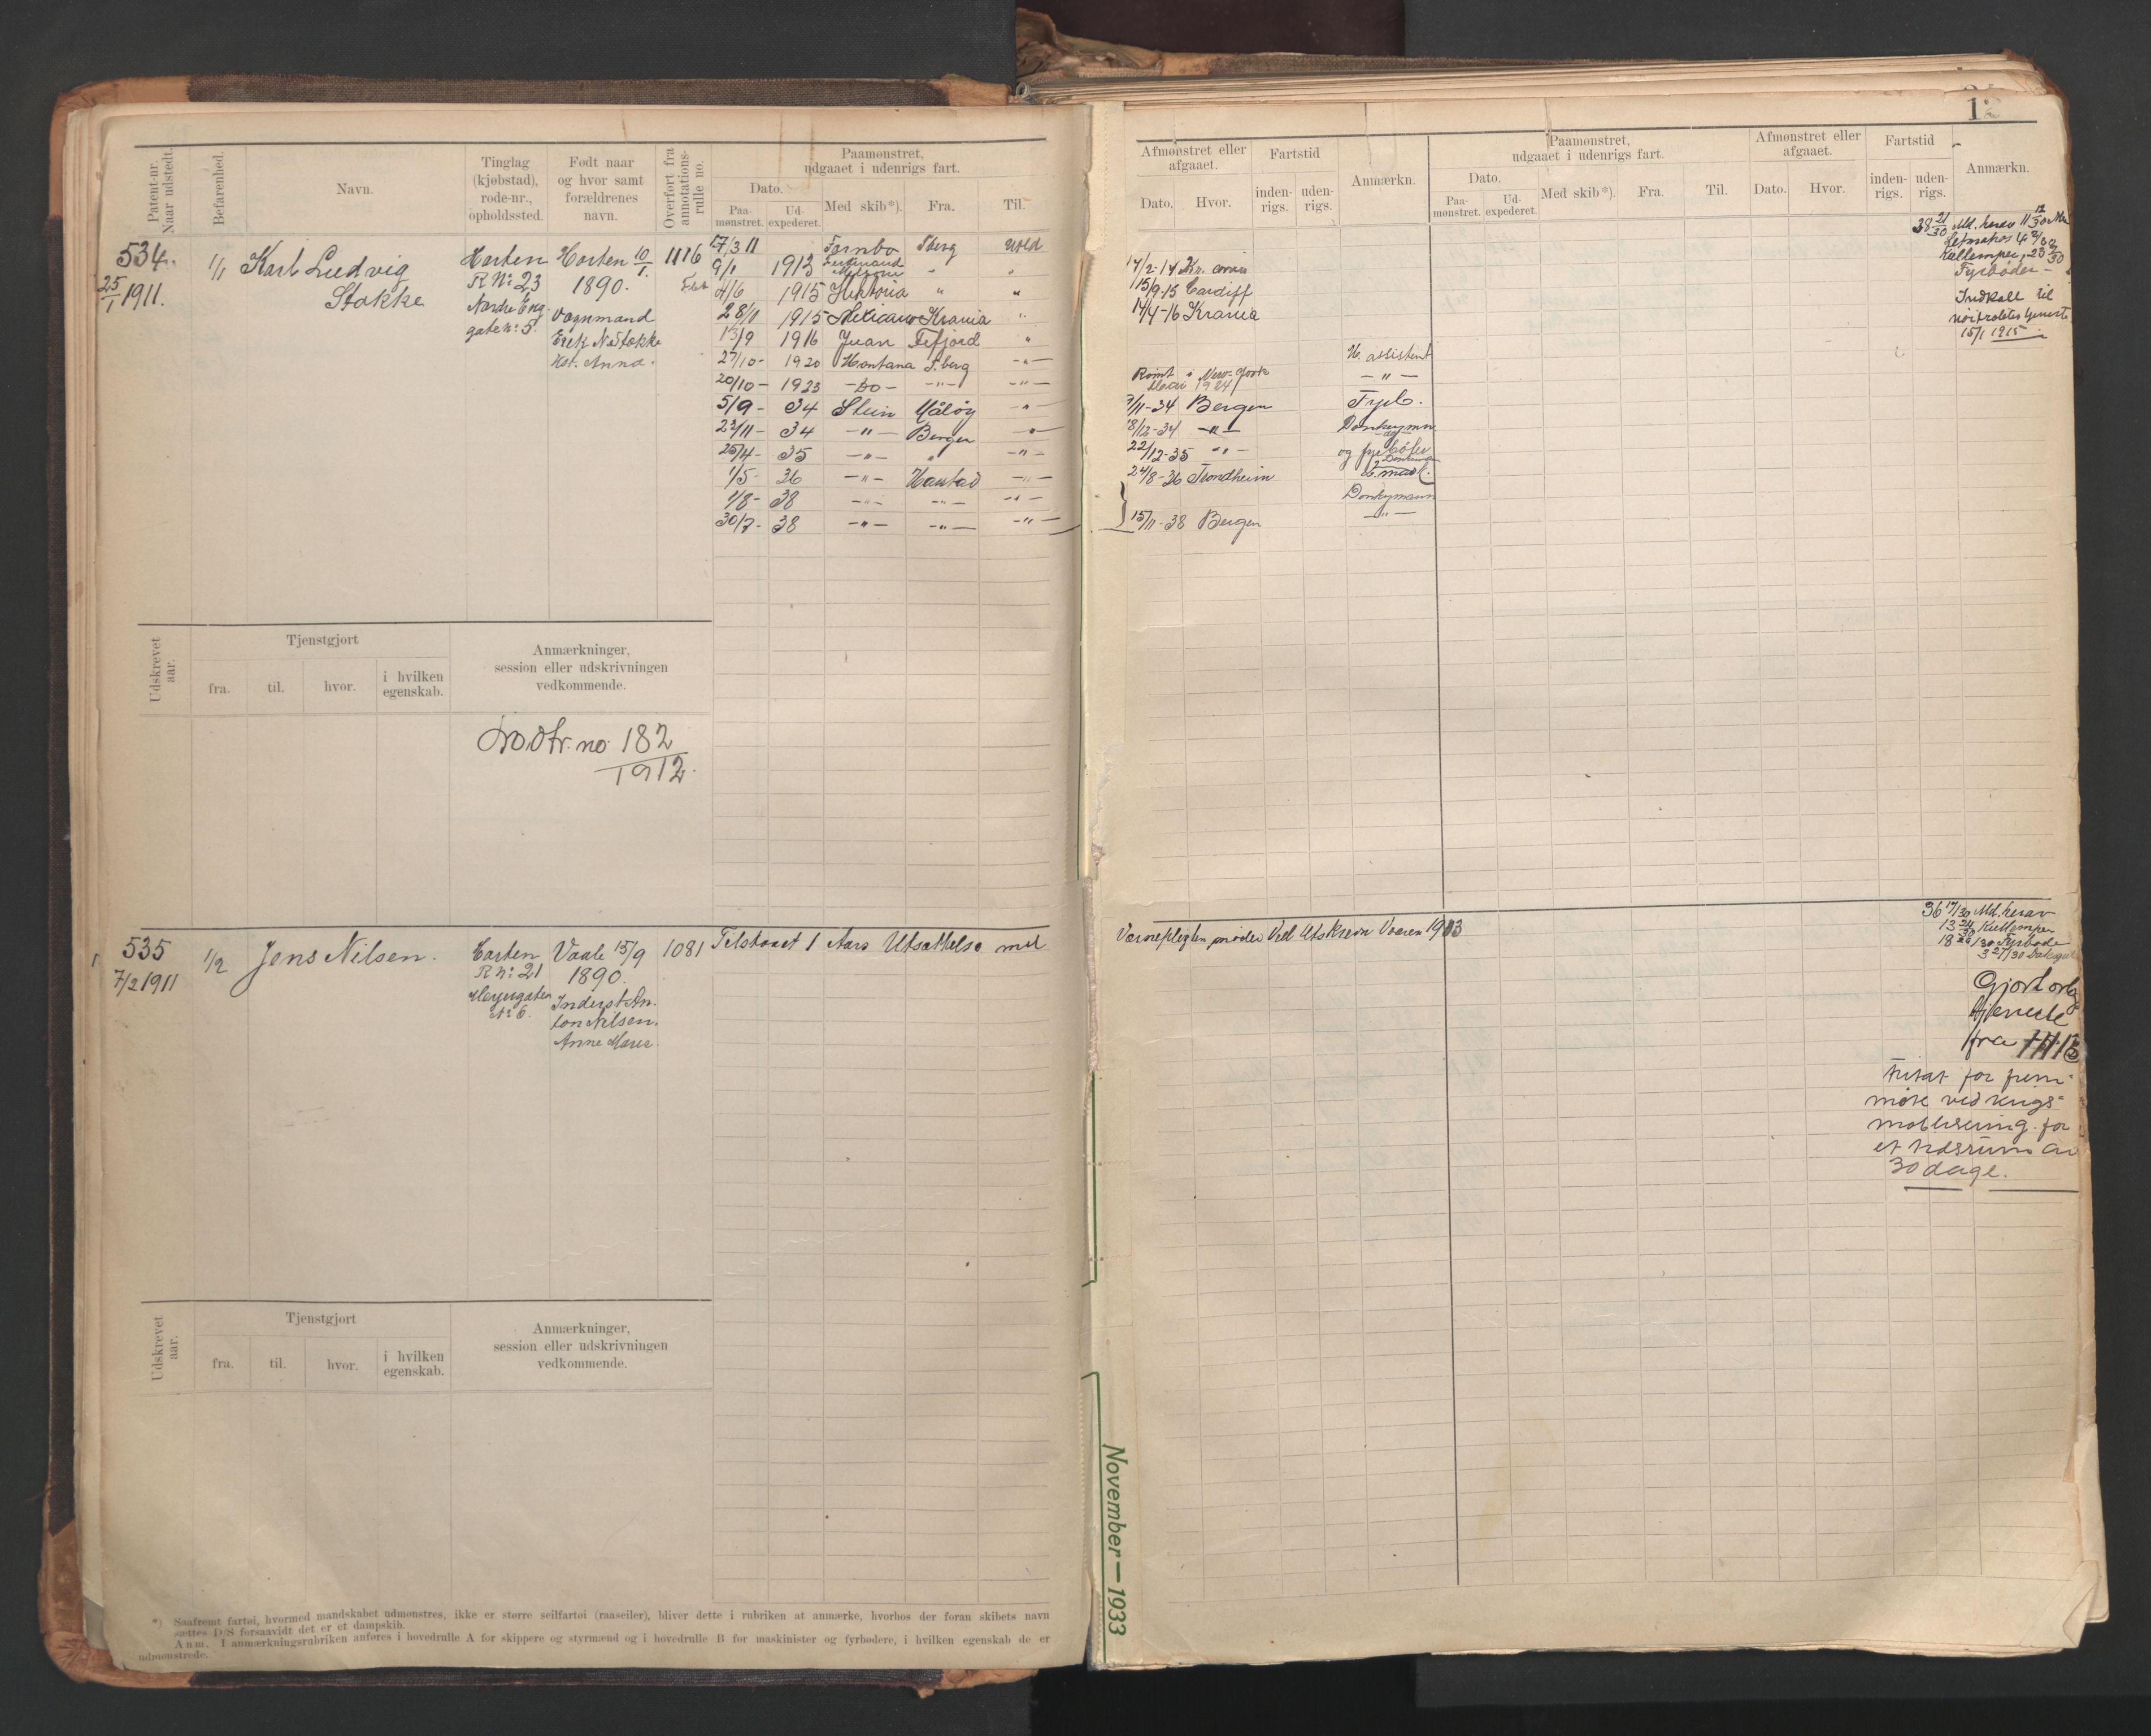 Patent-nr. Naar udstedt.
Befarenhed.
Navn.
Tinglag (kjøbstad), rode-nr., opholdssted.
Født naar og hvor samt forældrenes navn.
Overført fra annotations-rulle no.
Paamønstret, udgaaet i udenrigs fart.
Dato.
Paa-mønstret.
Ud-expederet.
Med skib*).
Fra.
Til.
534.
25/1 1911.
1/1
Karl Ludvig
Stokke
Horten
R No: 23
Nordre Eng
gate No: 5.
Horten 10/1.
1890.
Vognmand
Hst. Anna.
1116
17/3 11 Tbrg Uold
9/1 1913 Ferdinand " "
4/6 1915 Hektoria " "
28/11 1915 Mexicano Krania "
13/9 1916 Juan Tefjord "
27/10- 1920 Montana T.berg -"-
20/10- 1923 -Do- -"- -"-
5/9- 34 Stein Måløy -"-
23/11- 34 -"- Bergen -"-
25/4- 35 -"- " -"-
1/5- 36 -"- -"-
1/8- 38 -"- -"- -"-
30/7- 38 -"- -"- -"-
Udskrevet aar.
Tjenstgjort
fra.
til.
hvor.
i hvilken egenskab.
Anmærkninger, session eller udskrivningen vedkommende.
182
1912.
535
7/2 1911
1/2
Jens Nilsen.
Horten
R No: 21
No: 6.
Vaale 15/9
1890.
Inderst An.
ton Nilsen.
Anne Marie.
1081
Tilstaaet 1 Aars Utsættelse med
Udskrevet aar.
Tjenstgjort
fra.
til.
hvor.
i hvilken egenskab.
Anmærkninger, session eller udskrivningen vedkommende.
*) Saafremt fartøi, hvormed mandskabet udmønstres, ikke er større seilfartøi (raaseiler), bliver dette i rubriken at anmærke, hvorhos der foran skibets navn
sættes D/S forsaavidt det er et dampskib.
Anm. I anmærkningsrubriken anføres i hovedrulle A for skippere og styrmænd og i hovedrulle B for maskinister og fyrbødere, i hvilken egenskab de er
udmønstrede.
Afmønstret eller afgaaet.
Dato.
Hvor.
Fartstid
inden-rigs.
uden-rigs.
Anmærkn.
Paamønstret, udgaaet i udenrigs fart.
Dato.
Paa-mønstret.
Ud-expederet.
Med skib*).
Fra.
Til.
Afmønstret eller afgaaet.
Dato.
Hvor.
Fartstid
inden-rigs.
uden-rigs.
Anmærkn.
14/2-14
15/9-15 Cardiff
14/4-16 Krania
M. assistent
Rømt i New-York -"-
Mai 1924
7/11-34 Bergen Fyrb.
18/12-34 -"- Donkeymn
22/12-35 -"- og fyrbøter
24/8-36 Trondheim
Donkeymann
15/11-38 Bergen -"-
38 21/30 Md. herav 11 12/30
Fyrbøder
Indkalt til
nøitralitetstjeneste
15/1 1915
Værnepligten Ved Utskrevn Vaaren 1913
36 17/30 Md. herav
13 Kullemper
18 Fyrbøder
Gjort
tjeneste
fra
fritat for frem-
møte ved krigs-
mobilisering for
et tidsrum av
30 dage.
November—1933